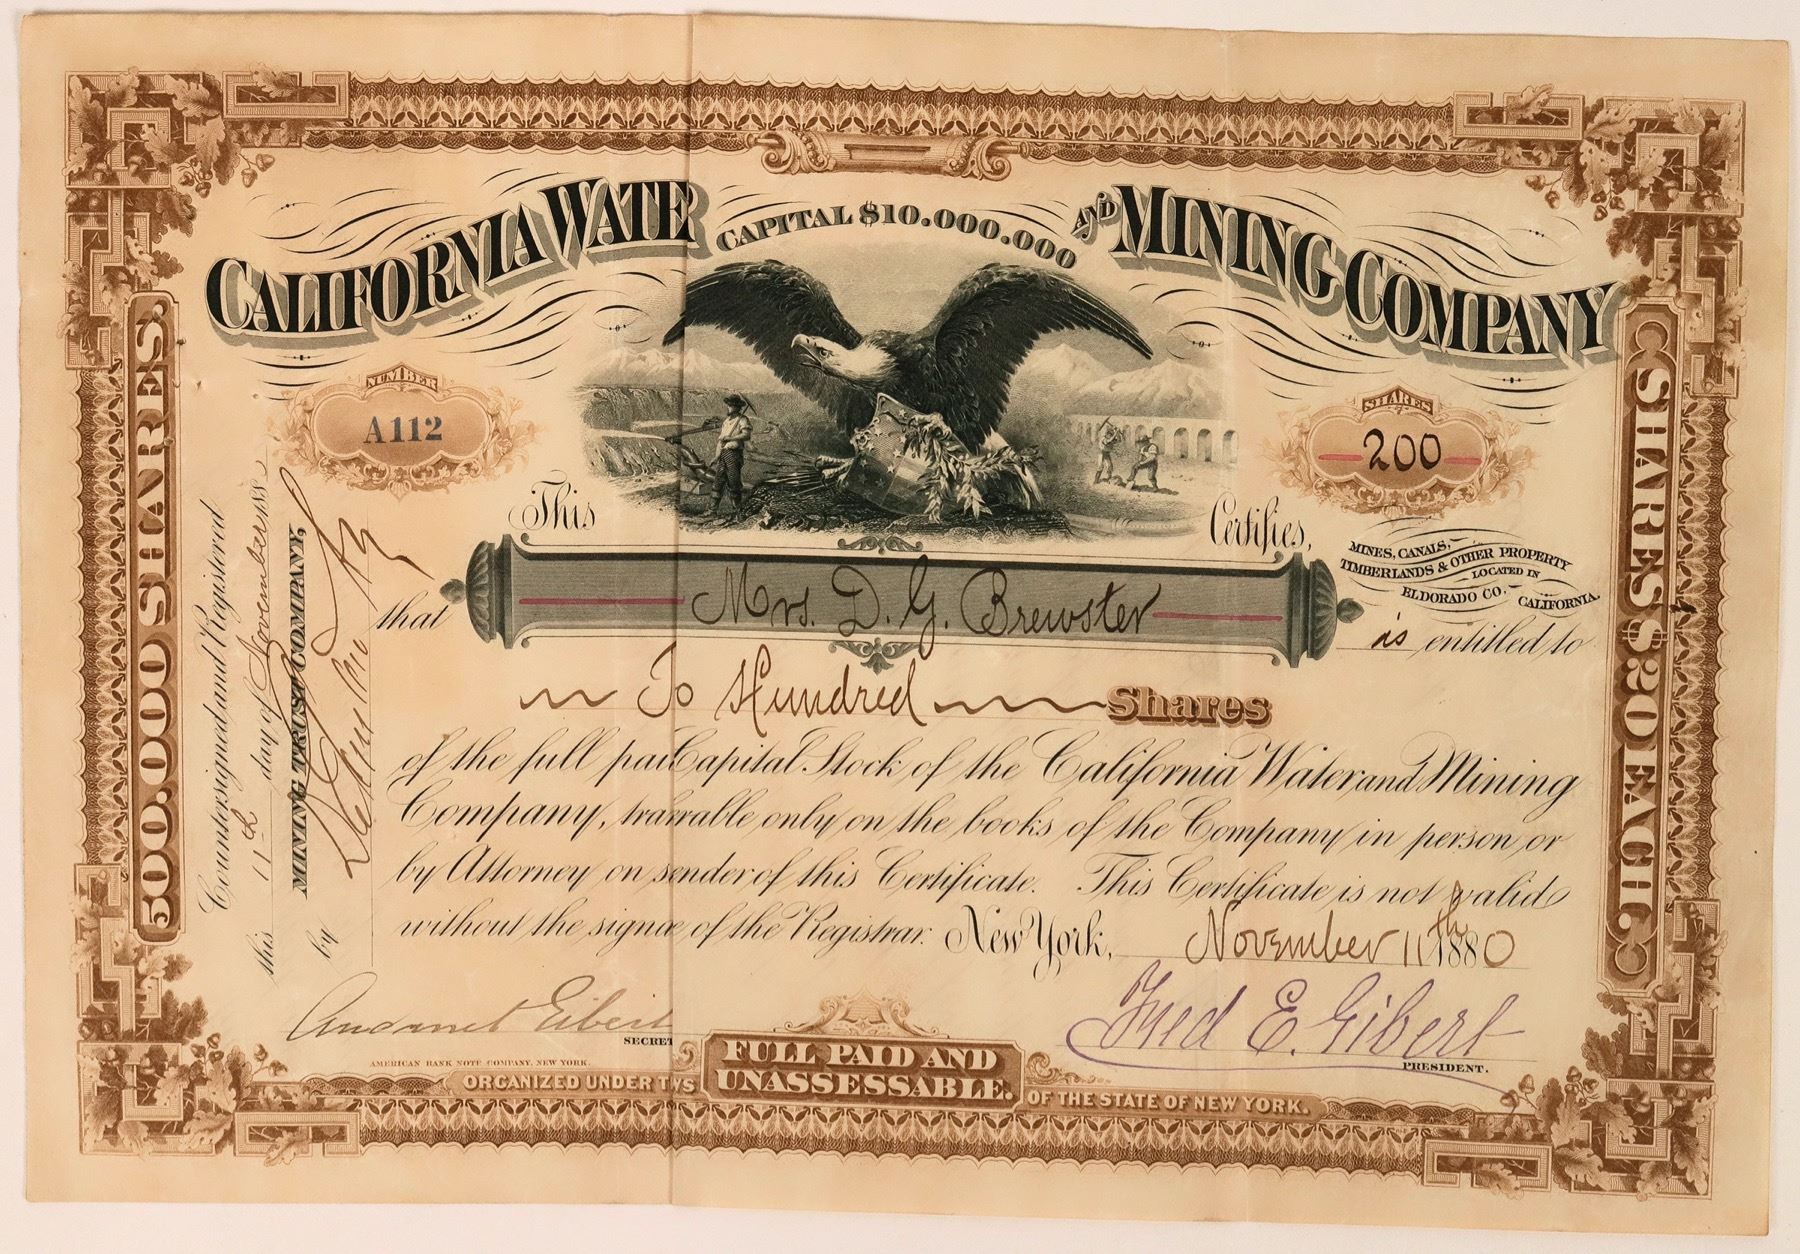 CALIFORNIA WATE
CAPITAL $10.000.000
AND MINING COMPANY
NUMBER
A112
SHARES
200
500.000 SHARES.
SHARES $20 EACH
This
Certifies,
MINES, CANALS,
TIMBERLANDS & OTHER PROPERTY
LOCATED IN
ELDORADO CO. CALIFORNIA.
that Mrs. D. G. Brewster is entitled to
To Hundred Shares
of the full pai Capital Stock of the California Water and Mining
Company, tra rable only on the books of the Company in person or
by Attorney on s nder of this Certificate. This Certificate is not valid
without the sign e, of the Registrar. New York, November 11th 1880
Countersigned and Registered
this 11th day of November 188
MINING TRUST COMPANY,
by
SECRET
Fred E. Gibert
PRESIDENT.
AMERICAN BANK NOTE COMPANY, NEW YORK.
ORGANIZED UNDER T WS
FULL PAID AND
UNASSESSABLE.
OF THE STATE OF NEW YORK.